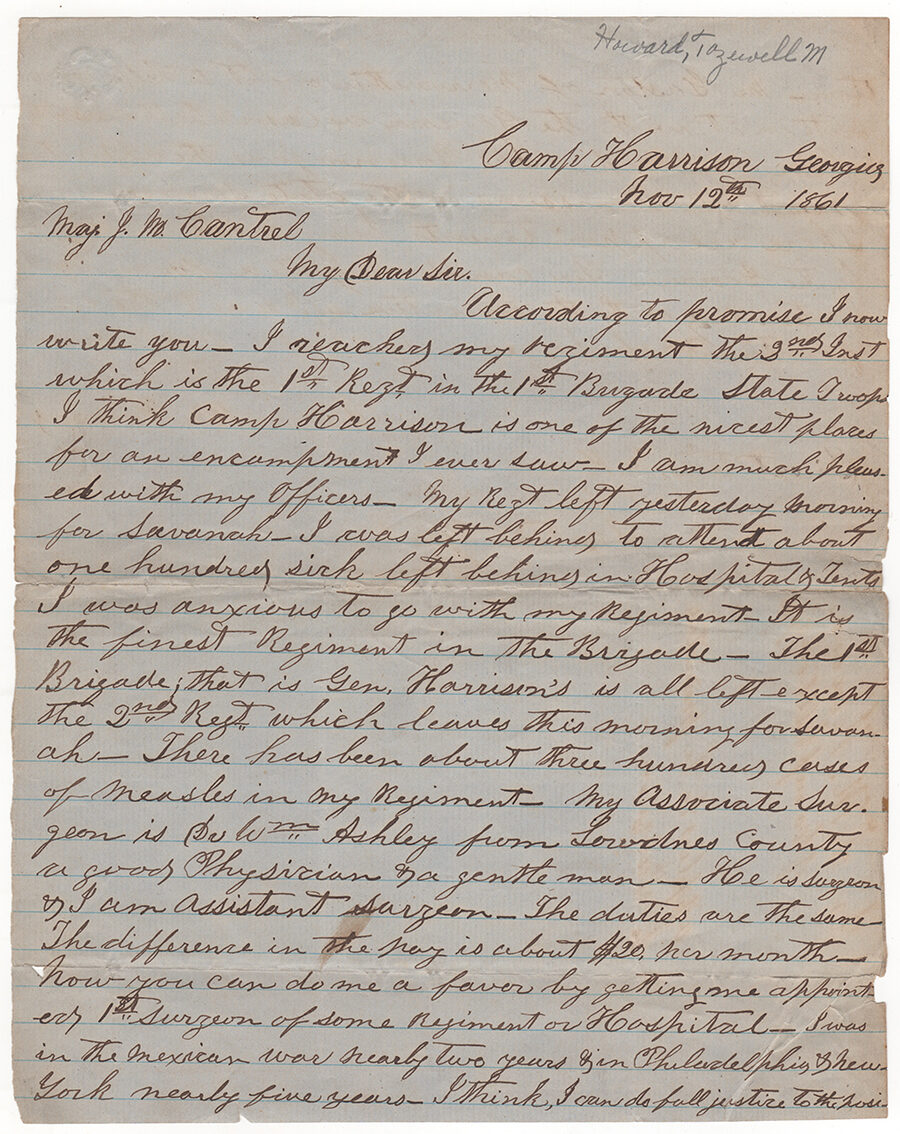 Howard, Tazewell M
Camp Harrison Georgia
Nov 12th 1861
Maj. J. M. Cantrel
My Dear Sir.
According to promise I now
write you – I reached my regiment the 2nd Inst
which is the 1st Regt. in the 1st Brigade State Troops
I think Camp Harrison is one of the nicest places
for an encampment I ever saw – I am much pleas-
ed with my Officers – My Regt left yesterday morning
for Savanah – I was left behind to attend about
one hundred sick left behind in Hospital & Tents
I was anxious to go with my Regiment – It is
the finest Regiment in the Brigade – The 1st
Brigade, that is Gen. Harrison's is all left except
the 2nd Regt. which leaves this morning for Savan-
ah – There has been about three hundred cases
of Measles in my Regiment – My Associate Sur-
geon is Dr Wm Ashley from Lowdnes County
a good Physician & a gentle man – He is Surgeon
& I am Assistant Surgeon – The duties are the same
The difference in the pay is about $20. per month –
Now you can do me a favor by getting me appoint-
ed 1st Surgeon of some Regiment or Hospital – I was
in the Mexican war nearly two years & in Philadelphia & New-
York nearly five years – I think, I can do full justice to the posi-